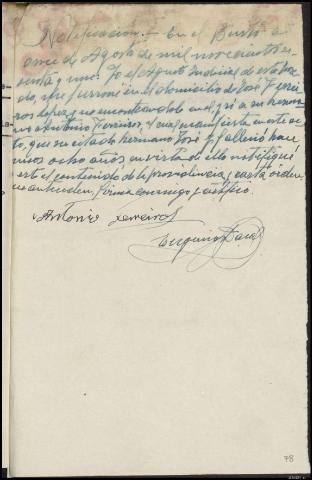 Notificacion.- En el Busto a
once de Agosto de mil novecientos se
senta y uno. Yo el Agente Judicial de este Juzga
do, me persone en el domicilio de Jose Ferrei
ros Lopez y no encontrandolo en el, a su herma
no Antonio Ferreiros, el cual manifiesta en este ac
to, que su citado hermano Jose fallecio hace
unos ocho años, en vista de ello notifiqué
este el contenido de la providencia y carta orden
enterado, firma conmigo, certifico.
Antonio Ferreiros
78